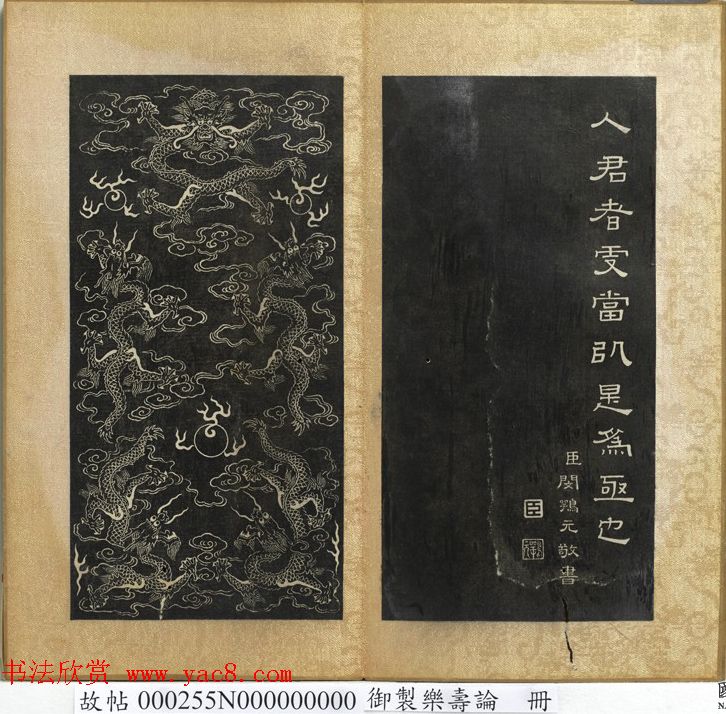 人君者更當以是為亟也
臣閔鶚元敬書
臣
书法欣赏 www.yac8.com
故帖 000255N000000000 御製樂壽論 冊